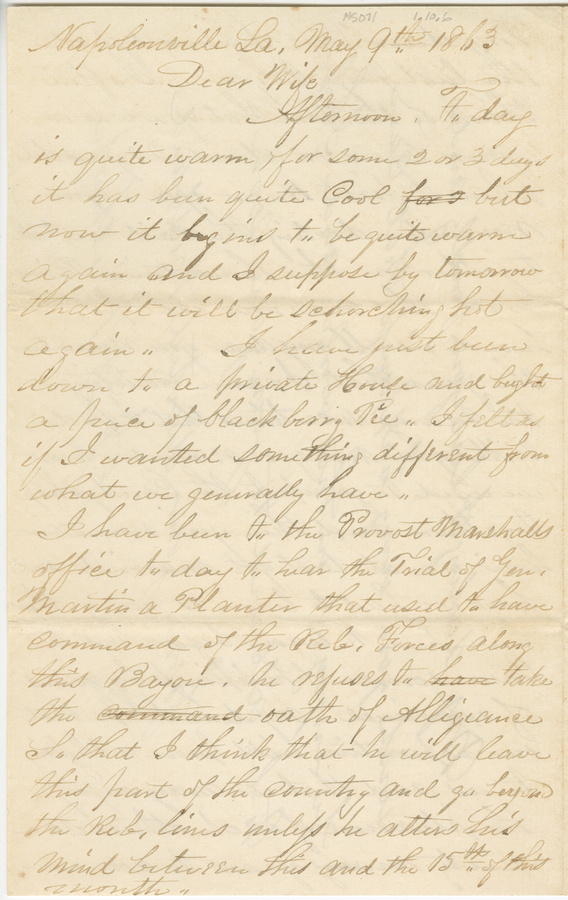 MS071 1.10.6
Napoleonville La, May 9th 1863
Dear Wife
Afternoon. To day
is quite warm for some 2 or 3 days
it has been quite Cool for s but
now it begins to be quite warm
again and I suppose by tomorrow
that it will be schorching hot
again" I have just been
down to a private House and bught
a peice of blackberry Pie" I felt as
if I wanted something different from
what we generally have"
I have been to the Provost Marshalls
office to day to hear the Trial of Gen.
Martin a Planter that used to have
command of the Reb. Forces along
this Bayou. he refuses to have take
the command oath of Alligiance
So that I think that he will leave
this part of the country and go beyond
the Reb. lines unless he alters his
mind between this and the 15th of this
month"